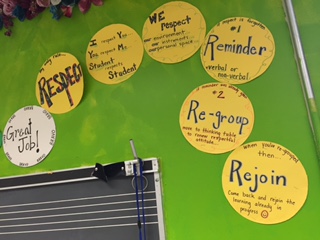 Great
Job!
RESPECT
I respect You
You respect Me
Student
respect
Student
WE
respect
our environment
our instruments
our personal space
if respect is forgotten
#1
Reminder
verbal or
non-verbal
#2
Re-group
move to thinking table
to renew respectful
attitude
when you've re-grouped
then...
Rejoin
Come back and rejoin the
learning already in
progress